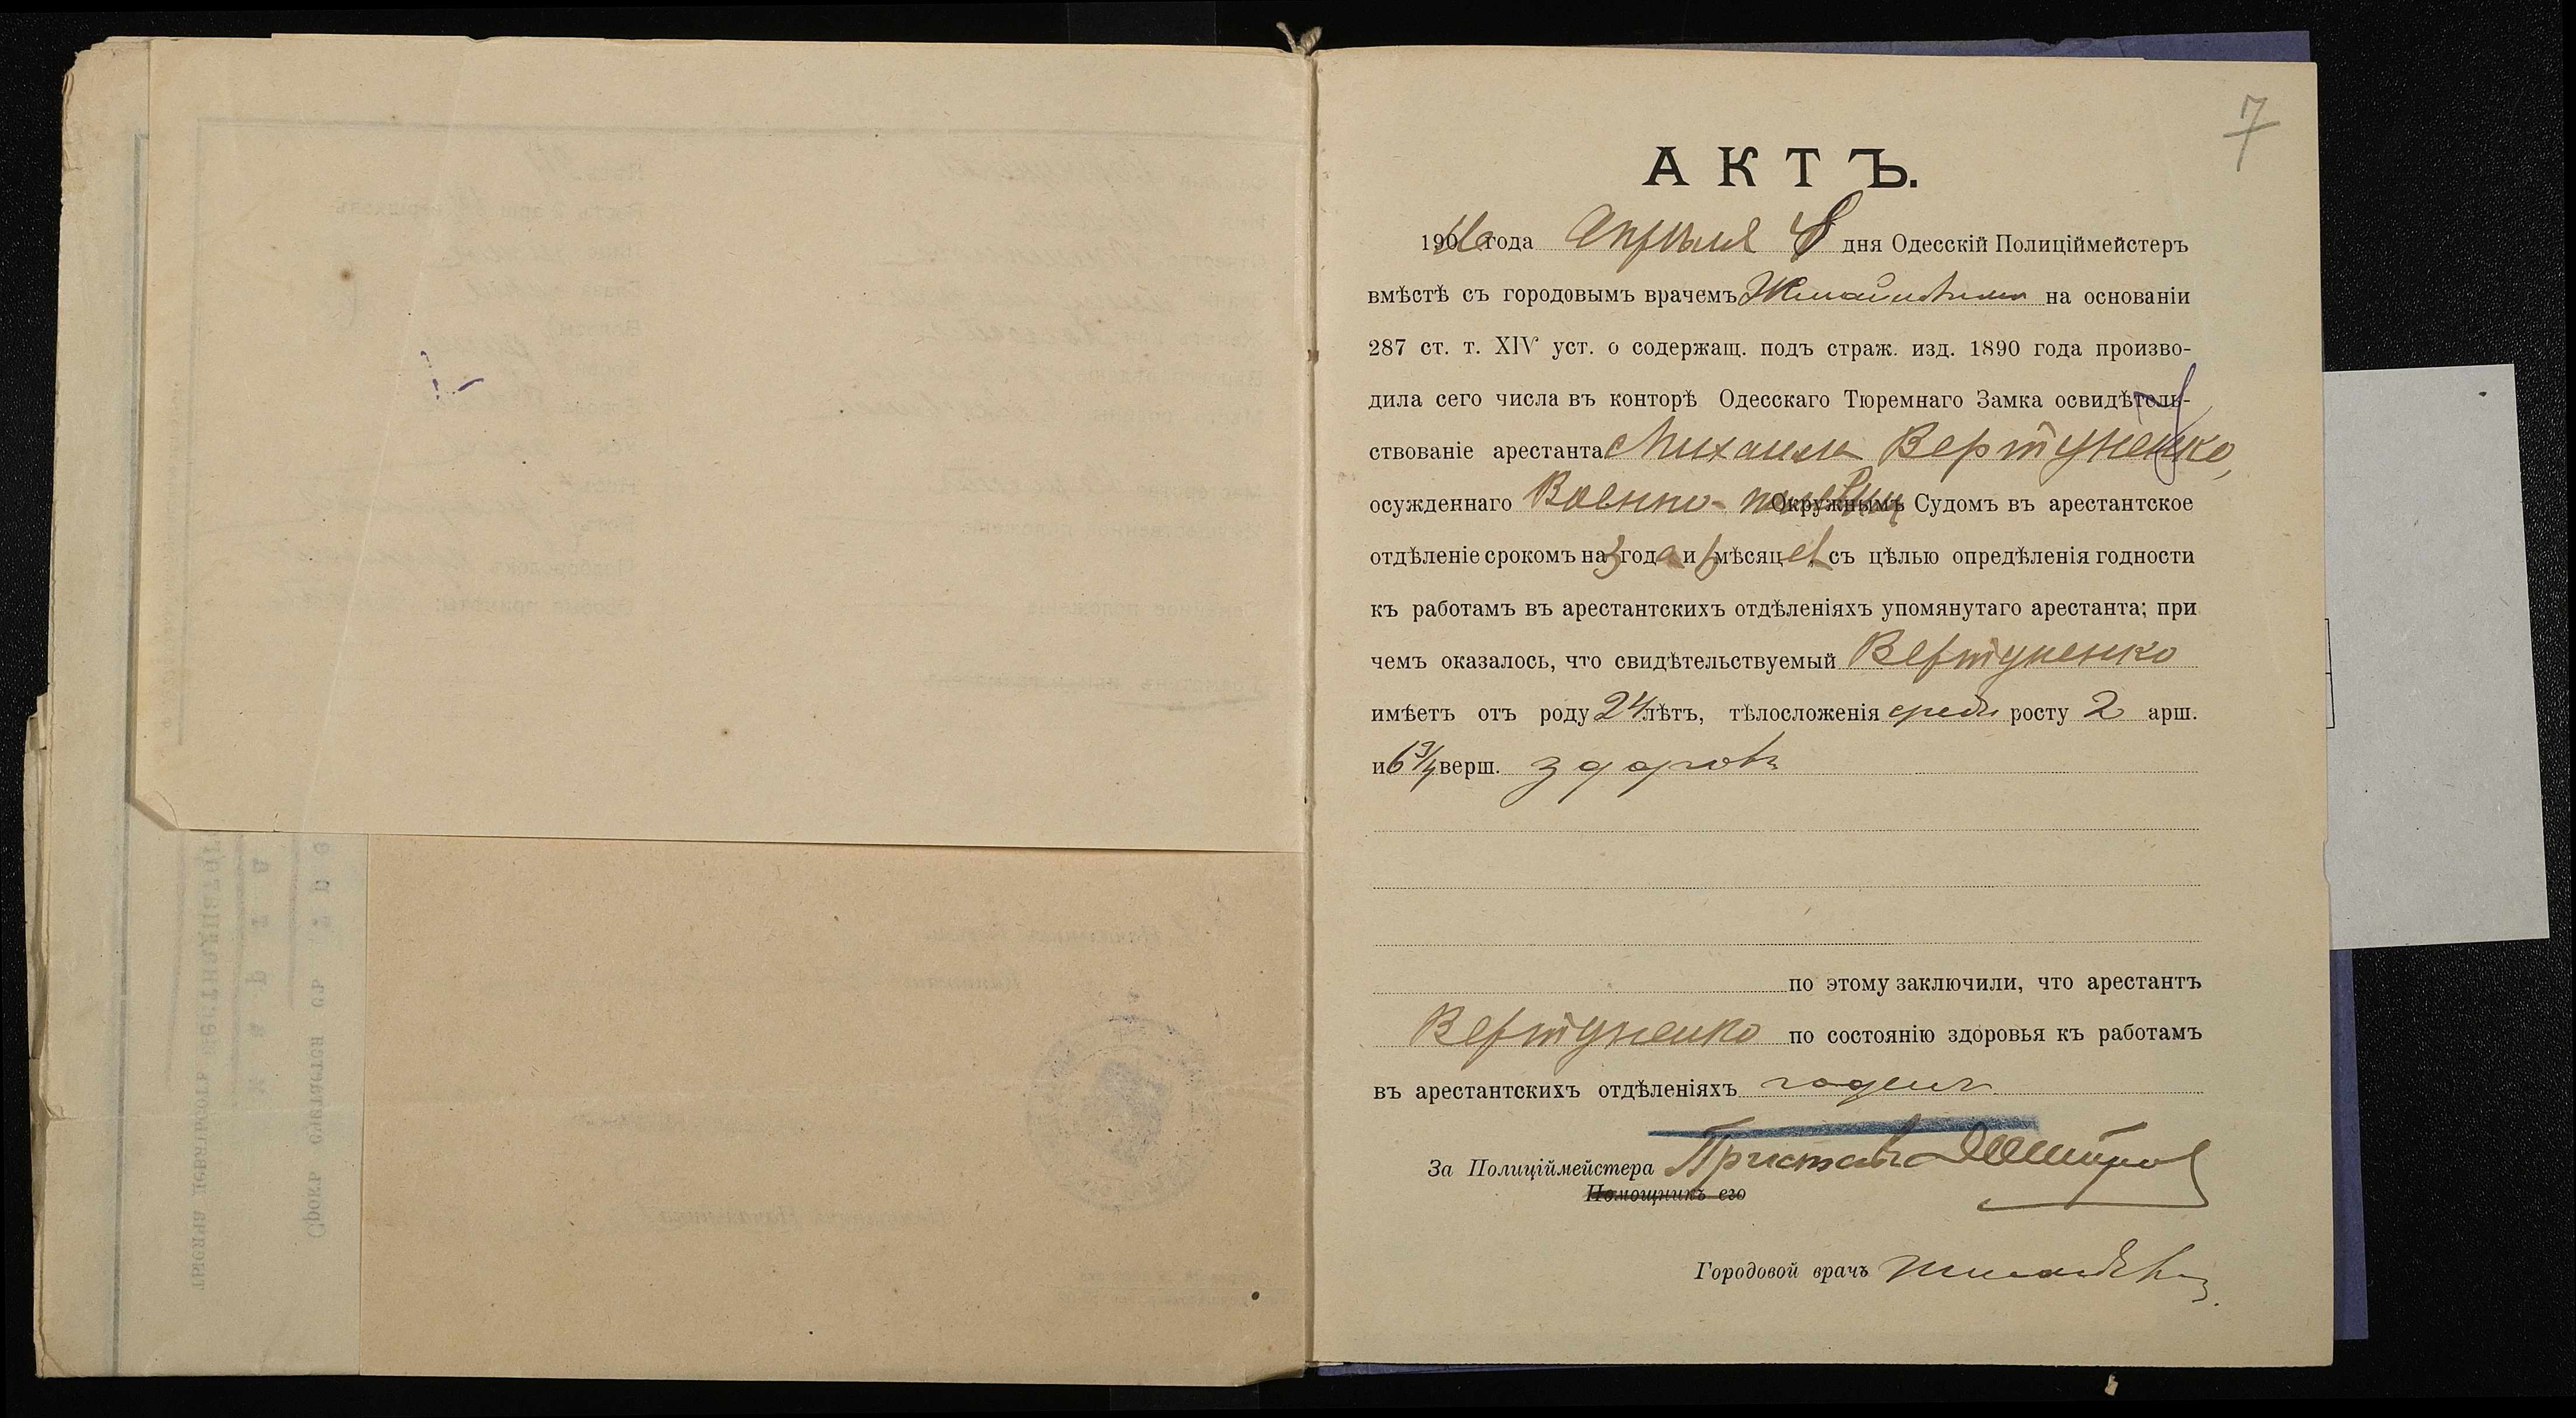 7
АКТЪ.
года Апрѣля 8 дня Одесскій Полиціймейстеръ
вмѣстѣ съ городовымъ врачемъ на основаніи
287 ст. т. XIV уст. о содержащ. подъ страж. изд. 1890 года произво-
дила сего числа въ конторѣ Одесскаго Тюремнаго Замка освидѣтель-
ствованіе арестанта Михаила Вертуненко,
осужденнаго Военно- Окружнымъ Судомъ въ арестантское
отдѣленіе срокомъ на 3 года и 6 мѣсяцев съ цѣлью опредѣленія годности
къ работамъ въ арестантскихъ отдѣленіяхъ упомянутаго арестанта; при
чемъ оказалось, что свидѣтельствуемый Вертуненко
имѣетъ отъ роду 24 лѣтъ, тѣлосложенія средн росту 2 арш.
и 6 3/4 верш. здоровъ
по этому заключили, что арестантъ
Вертуненко по состоянію здоровья къ работамъ
въ арестантскихъ отдѣленіяхъ годенъ
За Полиціймейстера Приставъ
Помощникъ его
Городовой врачъ